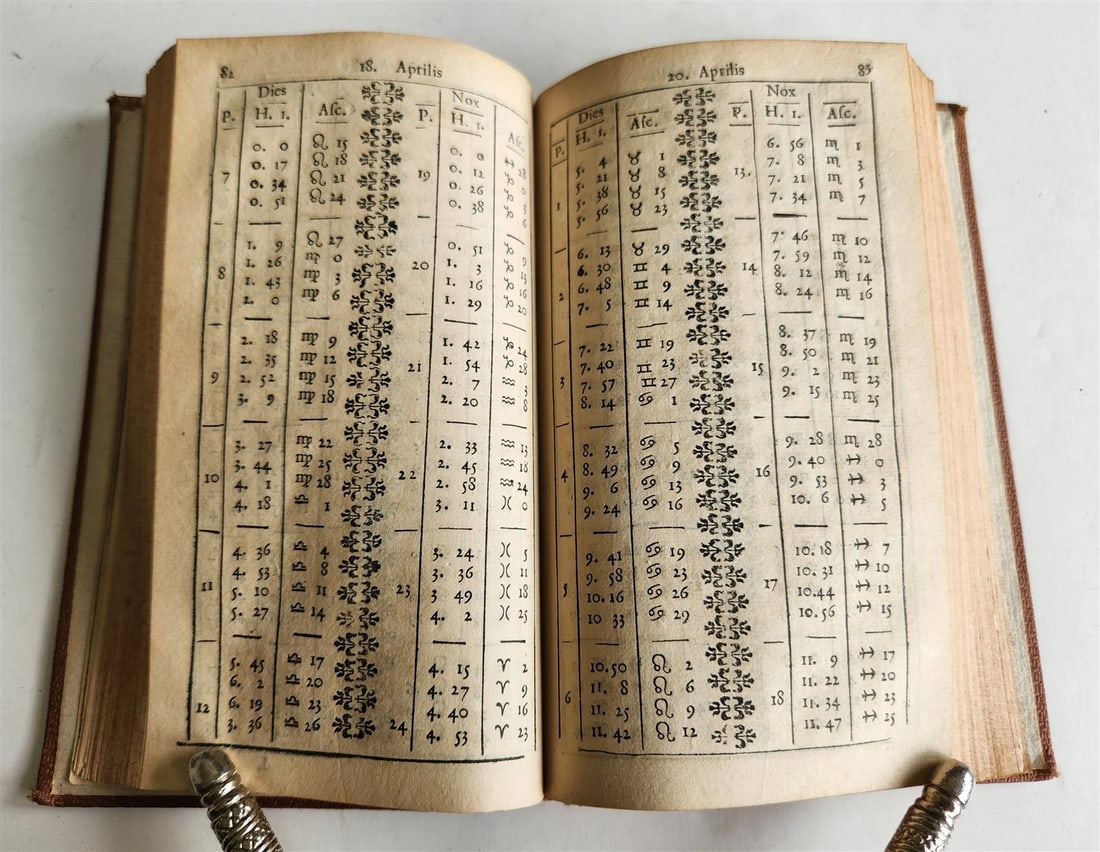 82 18. Aprilis
Dies Nox
P. H. I. Aſc. P. H. I. Aſc.
0. 0 ♌ 15 0. 0 ♐ 28
0. 17 ♌ 18 0. 12 ♑ 0
7 0. 34 ♌ 21 19 0. 26 ♑ 3
0. 51 ♌ 24 0. 38 ♑ 6
1. 9 ♌ 27 0. 51 ♑ 9
8 1. 26 ♍ 0 20 1. 3 ♑ 13
1. 43 ♍ 3 1. 16 ♑ 16
2. 0 ♍ 6 1. 29 ♑ 20
2. 18 ♍ 9 1. 42 ♑ 24
2. 35 ♍ 12 21 1. 54 ♑ 28
9 2. 52 ♍ 15 2. 7 ♒ 3
3. 9 ♍ 18 2. 20 ♒ 8
3. 27 ♍ 22 2. 33 ♒ 13
3. 44 ♍ 25 2. 45 ♒ 18
10 4. 1 ♍ 28 22 2. 58 ♒ 24
4. 18 ♎ 1 3. 11 ♓ 0
4. 36 ♎ 4 3. 24 ♓ 5
4. 53 ♎ 8 3. 36 ♓ 11
11 5. 10 ♎ 11 23 3 49 ♓ 18
5. 27 ♎ 14 4. 2 ♓ 25
5. 45 ♎ 17 4. 15 ♈ 2
6. 2 ♎ 20 4. 27 ♈ 9
12 6. 19 ♎ 23 4. 40 ♈ 16
3. 36 ♎ 26 24 4. 53 ♈ 23
20. Aprilis 83
Dies Nox
P. H. I. Aſc. P. H. I. Aſc.
5. 4 ♉ 1 6. 56 ♏ 1
5. 21 ♉ 8 13. 7. 8 ♏ 3
1 5. 38 ♉ 15 7. 21 ♏ 5
5. 56 ♉ 23 7. 34 ♏ 7
6. 13 ♉ 29 7. 46 ♏ 10
6. 30 ♊ 4 14 7. 59 ♏ 12
2 6. 48 ♊ 9 8. 12 ♏ 14
7. 5 ♊ 14 8. 24 ♏ 16
7. 22 ♊ 19 8. 37 ♏ 19
7. 40 ♊ 23 15 8. 50 ♏ 21
3 7. 57 ♊ 27 9. 2 ♏ 23
8. 14 ♋ 1 9. 15 ♏ 25
8. 32 ♋ 5 9. 28 ♏ 28
4 8. 49 ♋ 9 16 9. 40 ♐ 0
9. 6 ♋ 13 9. 53 ♐ 3
9. 24 ♋ 16 10. 6 ♐ 5
9. 41 ♋ 19 10. 18 ♐ 7
5 9. 58 ♋ 23 17 10. 31 ♐ 10
10. 16 ♋ 26 10. 44 ♐ 12
10 33 ♋ 29 10. 56 ♐ 15
10. 50 ♌ 2 11. 9 ♐ 17
6 11. 8 ♌ 6 11. 22 ♐ 20
11. 25 ♌ 9 18 11. 34 ♐ 23
11. 42 ♌ 12 11. 47 ♐ 25